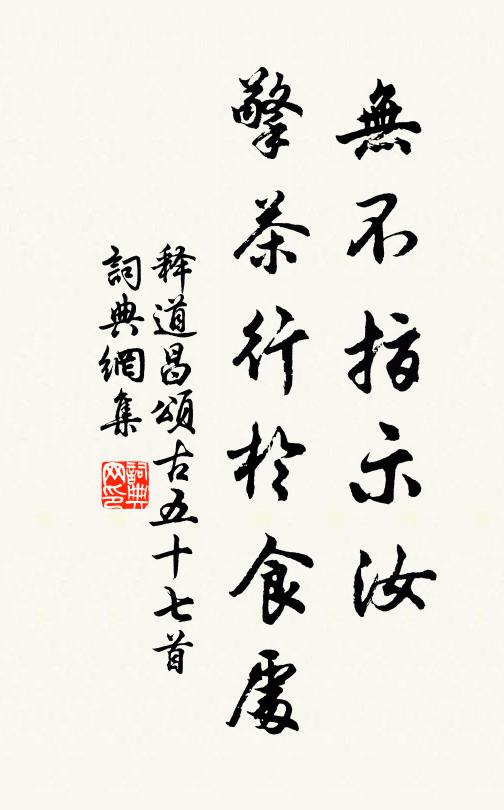 無不指示汝
擎茶行於食處
释道昌頌古五十七首
詞典網集
詞典网印